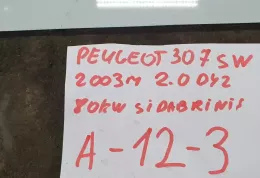 PEUGEOT 307 SW
2003m 2.0 DYZ
80KW SIDABRINIS
A-12-3